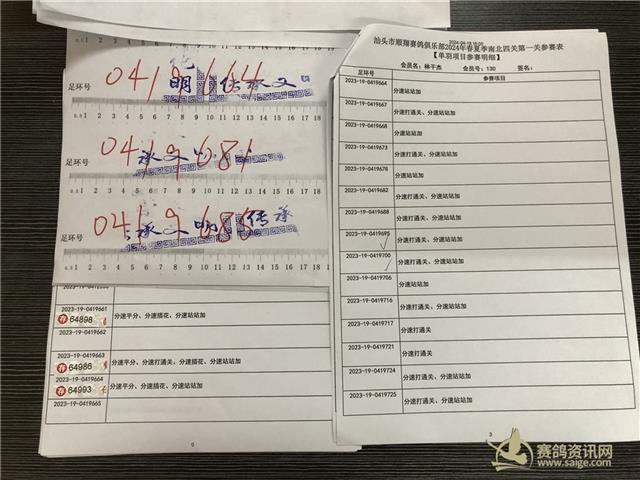 足环号
0419664
0 0.5 1 2 3 4 5 6 7 8 9 10 11 12 13 14 15 16 17 18
足环号
0419681
0.5 1 2 3 4 5 6 7 8 9 10 11 12 13 14 15 16 17 18
足环号
0419688
0.5 1 2 3 4 5 6 7 8 9 10 11 12 13 14 15 16 17 18
2023-19-0419661
64898
分速平分、分速插花、分速站站加
2023-19-0419662
2023-19-0419663
64986
分速平分、分速打通关、分速插花、分速站站加
2023-19-0419664
64993
分速平分、分速插花、分速站站加
2023-19-0419665
汕头市顺翔赛鸽俱乐部2024年春夏季南北四关第一关参赛表
【单羽项目参赛明细】
会员名：林干杰 会员号：130 签名：
足环号 参赛项目
2023-19-0419664 分速站站加
2023-19-0419667 分速打通关、分速站站加
2023-19-0419668 分速站站加
2023-19-0419673 分速打通关、分速站站加
2023-19-0419678 分速站站加
2023-19-0419682 分速打通关、分速站站加
2023-19-0419688 分速打通关、分速站站加
2023-19-0419695 分速打通关、分速站站加
2023-19-0419700 分速打通关、分速站站加
2023-19-0419706 分速站站加
2023-19-0419716 分速打通关、分速站站加
2023-19-0419717 分速打通关
2023-19-0419721 分速打通关
2023-19-0419724 分速打通关、分速站站加
2023-19-0419725 分速打通关、分速站站加
3
赛鸽资讯网
www.saige.com